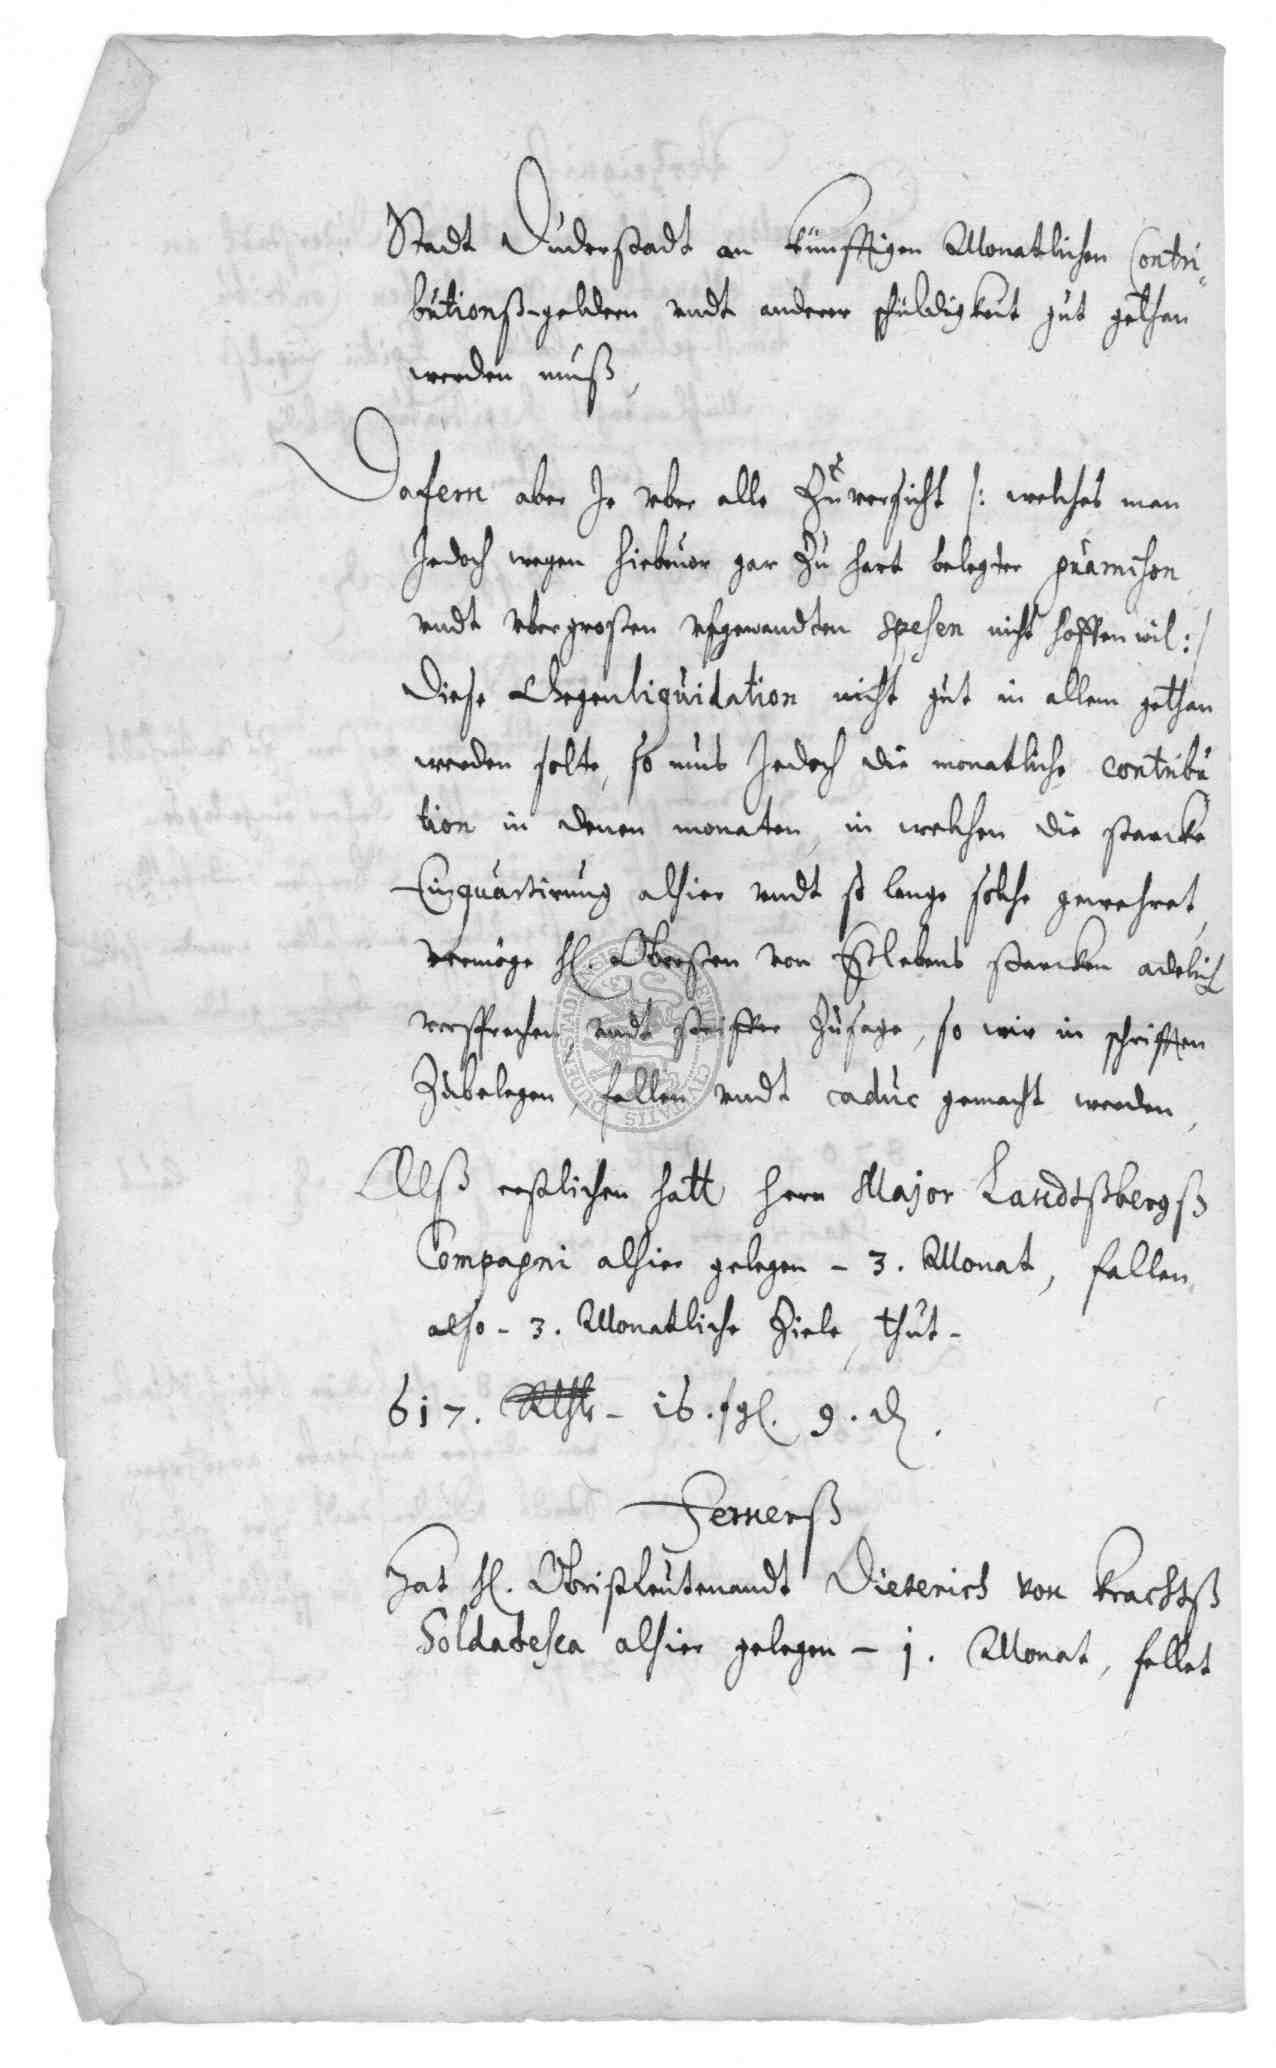 Stadt Duderstadt an künfftigen Monatlichen Contri-
butionß-geldern undt anderer schuldigkeit gut gethan
werden muß,
Dafern aber Je vber alle Zuversicht /: welches man
Jedoch wegen hiebeuor gar Zu hart belegter
vndt vbergroßen vfgewandten spesen nicht hoffen wil :/
Diese Gegenliquidation nicht gut in allem gethan
werden solte, so mus Jedoch die monatliche contribu
tion in denen monaten, in welchen die starcke
Einquartirung alhier vndt so lange solche gewehret,
vermöge H. Obersten von Eßlebens starcken adelich
versprechen vndt steiffer Zusage, so wir in schrifften
Zubelegen, fallen vndt caduc gemacht werden,
Alß erstlichen hatt herr Major Landtßbergß
Compagni alhier gelegen - 3. Monat, fallen
also - 3. Monatliche Ziele, thut -
617. Rthlr - 16. sgl. 9. d.
Fernerß
Hat H. Obristleutenandt Dieterich von Krachtß
Soldatesca alhier gelegen - 1. Monat, fellet
CIVITATIS DUDENSTADENSIS